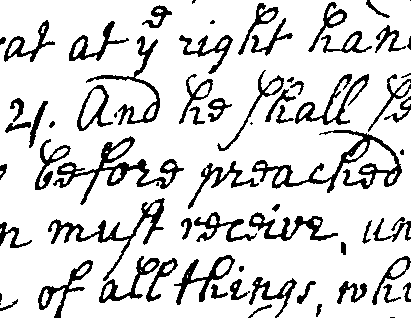 at at yᵉ right han
21. And he shall se
before preached
n must receive, un
of all things, whi